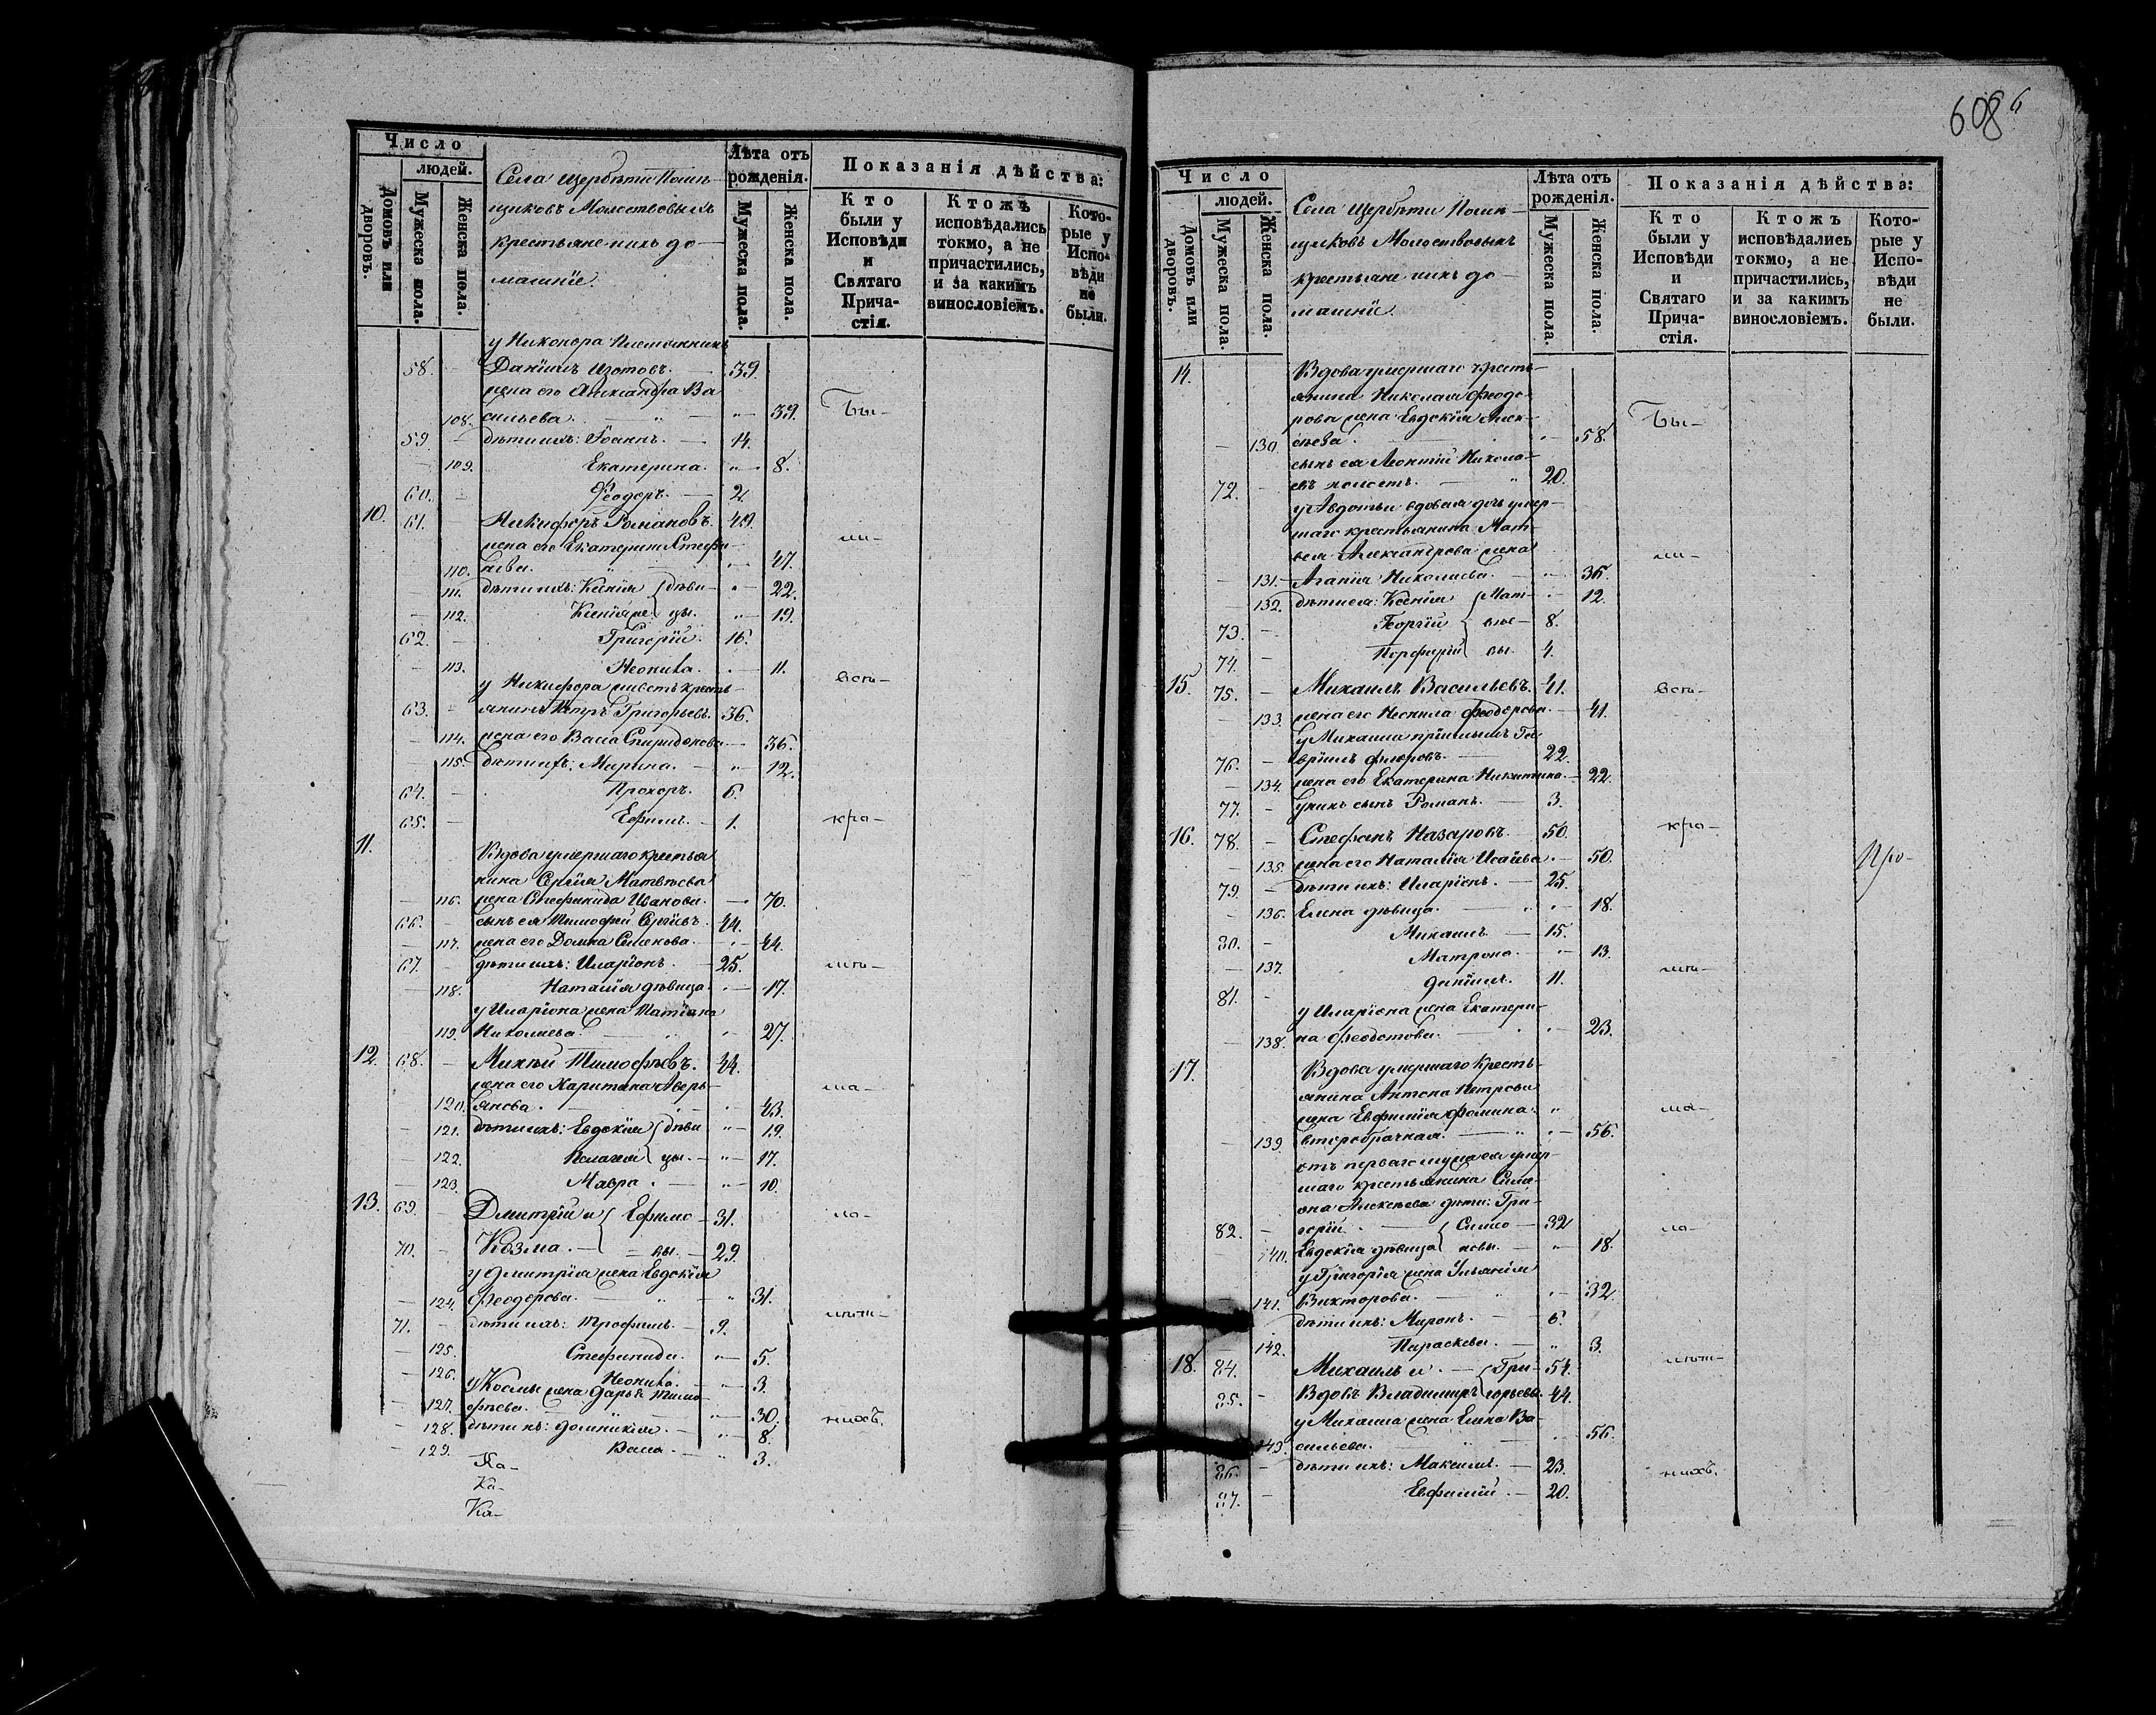 608
Число
людей.
Домовъ или дворовъ.
Мужеска пола.
Женска пола.
Села Щербѣти Помѣ-
щиковъ Молоствовыхъ
крестьяне ихъ до-
машніе.
Лѣта отъ
рожденія.
Мужеска пола.
Женска пола.
Показанія дѣйства:
Кто
были у
Исповѣди
и
Святаго
Прича-
стія.
Ктожъ
исповѣдались
токмо, а не
причастились,
и за какимъ
винословіемъ.
Кото-
рые у
Испо-
вѣди
не
были.
у Никонора племянникъ
58. — Даніилъ Изотовъ. — 39.
жена его Александра Ва
108. сильева. — „ — 39. Бы-
59. — дѣти ихъ: Іоаннъ. — 14.
— 109. Екатерина. „ — 8.
60. — Феодоръ. — 2.
10. 61. — Никифоръ Романовъ. 49.
жена его Екатерина Стефа- ли-
110. нова. „ — 47.
— 111. дѣти ихъ: Ксенія { дѣви- „ — 22.
— 112. Ксенія же { цы. „ — 19.
62. — Григорій. 16.
— 113. Неонила. — 11.
у Никифора зять кресть- вси-
63. — янинъ Петръ Григорьевъ. 36.
— 114. жена его Васса Спиридонова — 36.
— 115. дѣти ихъ: Марина. — „ — 12.
64. — Прохоръ. 6.
65. — Ефимъ. — 1. кро-
11. Вдова умершаго крестья
нина Сергія Матвѣева
— 116. жена Стефанида Иванова. — 70.
66. — сынъ ея Тимофей Сергіевъ. 44.
— 117. жена его Домна Семенова. — 44.
67. — дѣти ихъ: Иларіонъ. — 25. мѣ-
— 118. Наталія дѣвица. — 17.
у Иларіона жена Татіана
119. Николаева. — „ — 27.
12. 68. — Михѣй Тимофѣевъ. 44.
жена его Харитина Аверь- ма-
120. янова. — „ — 43.
— 121. дѣти ихъ: Евдокія { дѣви „ — 19.
— 122. Пелагея { цы. — „ — 17.
— 123. Мавра. — „ — 10.
13. 69. — Дмитрій и { Ефимо — 31. ло-
70. — Козма. — { — вы. — 29.
у Дмитрія жена Евдокія
— 124. Феодорова. — „ — „ 31.
71. — дѣти ихъ: Трофимъ. — 9. лѣт-
— 125. Стефанида. „ — 5.
— 126. Неонила. — „ — 3.
у Космы жена Дарья Тимо-
— 127. фѣева. — „ — 30. нихъ.
— 128. дѣти ихъ: Домникія. — „ — 8.
— 129. Васса. — „ 3.
Ка-
Ка-
Ка-
Число
людей.
Домовъ или дворовъ.
Мужеска пола.
Женска пола.
Села Щербѣти Помѣ-
щиковъ Молоствовыхъ
крестьяне ихъ до-
машніе.
Лѣта отъ
рожденія.
Мужеска пола.
Женска пола.
Показанія дѣйства:
Кто
были у
Исповѣди
и
Святаго
Прича-
стія.
Ктожъ
исповѣдались
токмо, а не
причастились,
и за какимъ
винословіемъ.
Кото-
рые у
Испо-
вѣди
не
были.
14. Вдова умершаго кресть-
янина Николая Феодо-
рова жена Евдокія Алек- Бы-
— 130. сѣева. — „ — 58.
сынъ ея Леонтій Никола-
72. — евъ холостъ. — „ 20.
у Авдотьи вдовая дочь умер-
шаго крестьянина Мат-
вея Александрова жена ли-
— 131. — Агапія Николаева. — „ — 36.
— 132. дѣти ея: Ксенія { Мат- „ — 12.
73. — Георгій { вѣе — 8.
74. — Порфирій { вы. 4.
15. 75. — Михаилъ Васильевъ. 41. вси-
— 133. жена его Неонила Феодорова. — 41.
у Михаила пріимышъ Га-
76. — вріилъ Флоровъ. — 22.
— 134. жена его Екатерина Никитина. — 22.
77. — у нихъ сынъ Романъ. — 3.
16. 78. — Стефанъ Назаровъ. 50. кро-
— 135. жена его Наталія Исаіева. — 50. Про-
79. — дѣти ихъ: Иларіонъ. — 25.
— 136. Елена дѣвица. — „ — 18.
80. — Михаилъ — 15.
— 137. Матрона. „ — 13. мѣ-
81. — Даніилъ. 11.
у Иларіона жена Екатери-
— 138. на Феодотова. — „ — 23.
17. Вдова умершаго кресть-
янина Антона Петрова
жена Евфимія Фомина „ ма-
— 139. второбрачная. — „ — 56.
отъ перваго мужа ея умер-
шаго крестьянина Симе-
она Алексѣева дѣти: Гри-
82. — горій. — { Симо — 32 ло-
140. Евдокія дѣвица { новы. — „ — 18.
у Григорія жена Ульянія
— 141. Викторова. — „ — 32.
— дѣти ихъ: Миронъ. — 6.
— 142. Параскева. — „ 3.
18. 84. Михаилъ и. — { Гри- 54. лѣт-
85. — Вдовъ Владимиръ { горьевы. 44.
у Михаила жена Елена Ва-
143. сильева. — „ — 56.
86. — дѣти ихъ: Максимъ. — 23. нихъ.
87. — Евфимій. — 20.